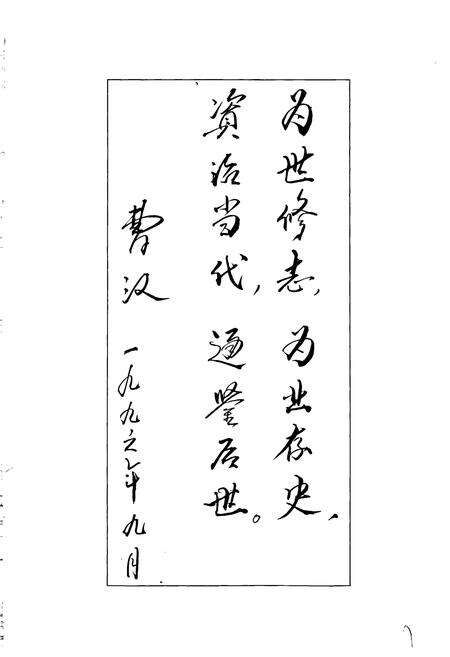 为世修志，为业存史，
资治当代，通鉴后世。
曹汉
一九九六年九月